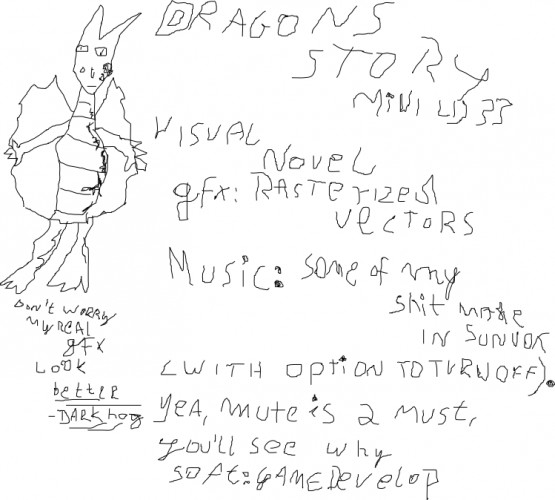 DRAGONS
STORY
MINI LD 33
VISUAL
NOVEL
gfx: RASTERIZED
VECTORS
MUSIC: some of my
shit made
IN SUNVOX
(WITH OPTION TO TURN OFF).
Yea, mute is a must,
you'll see why
soft: GAMEDevelop
DON'T WORRY
MY REAL
gfx
LOOK
better
-DARKhog